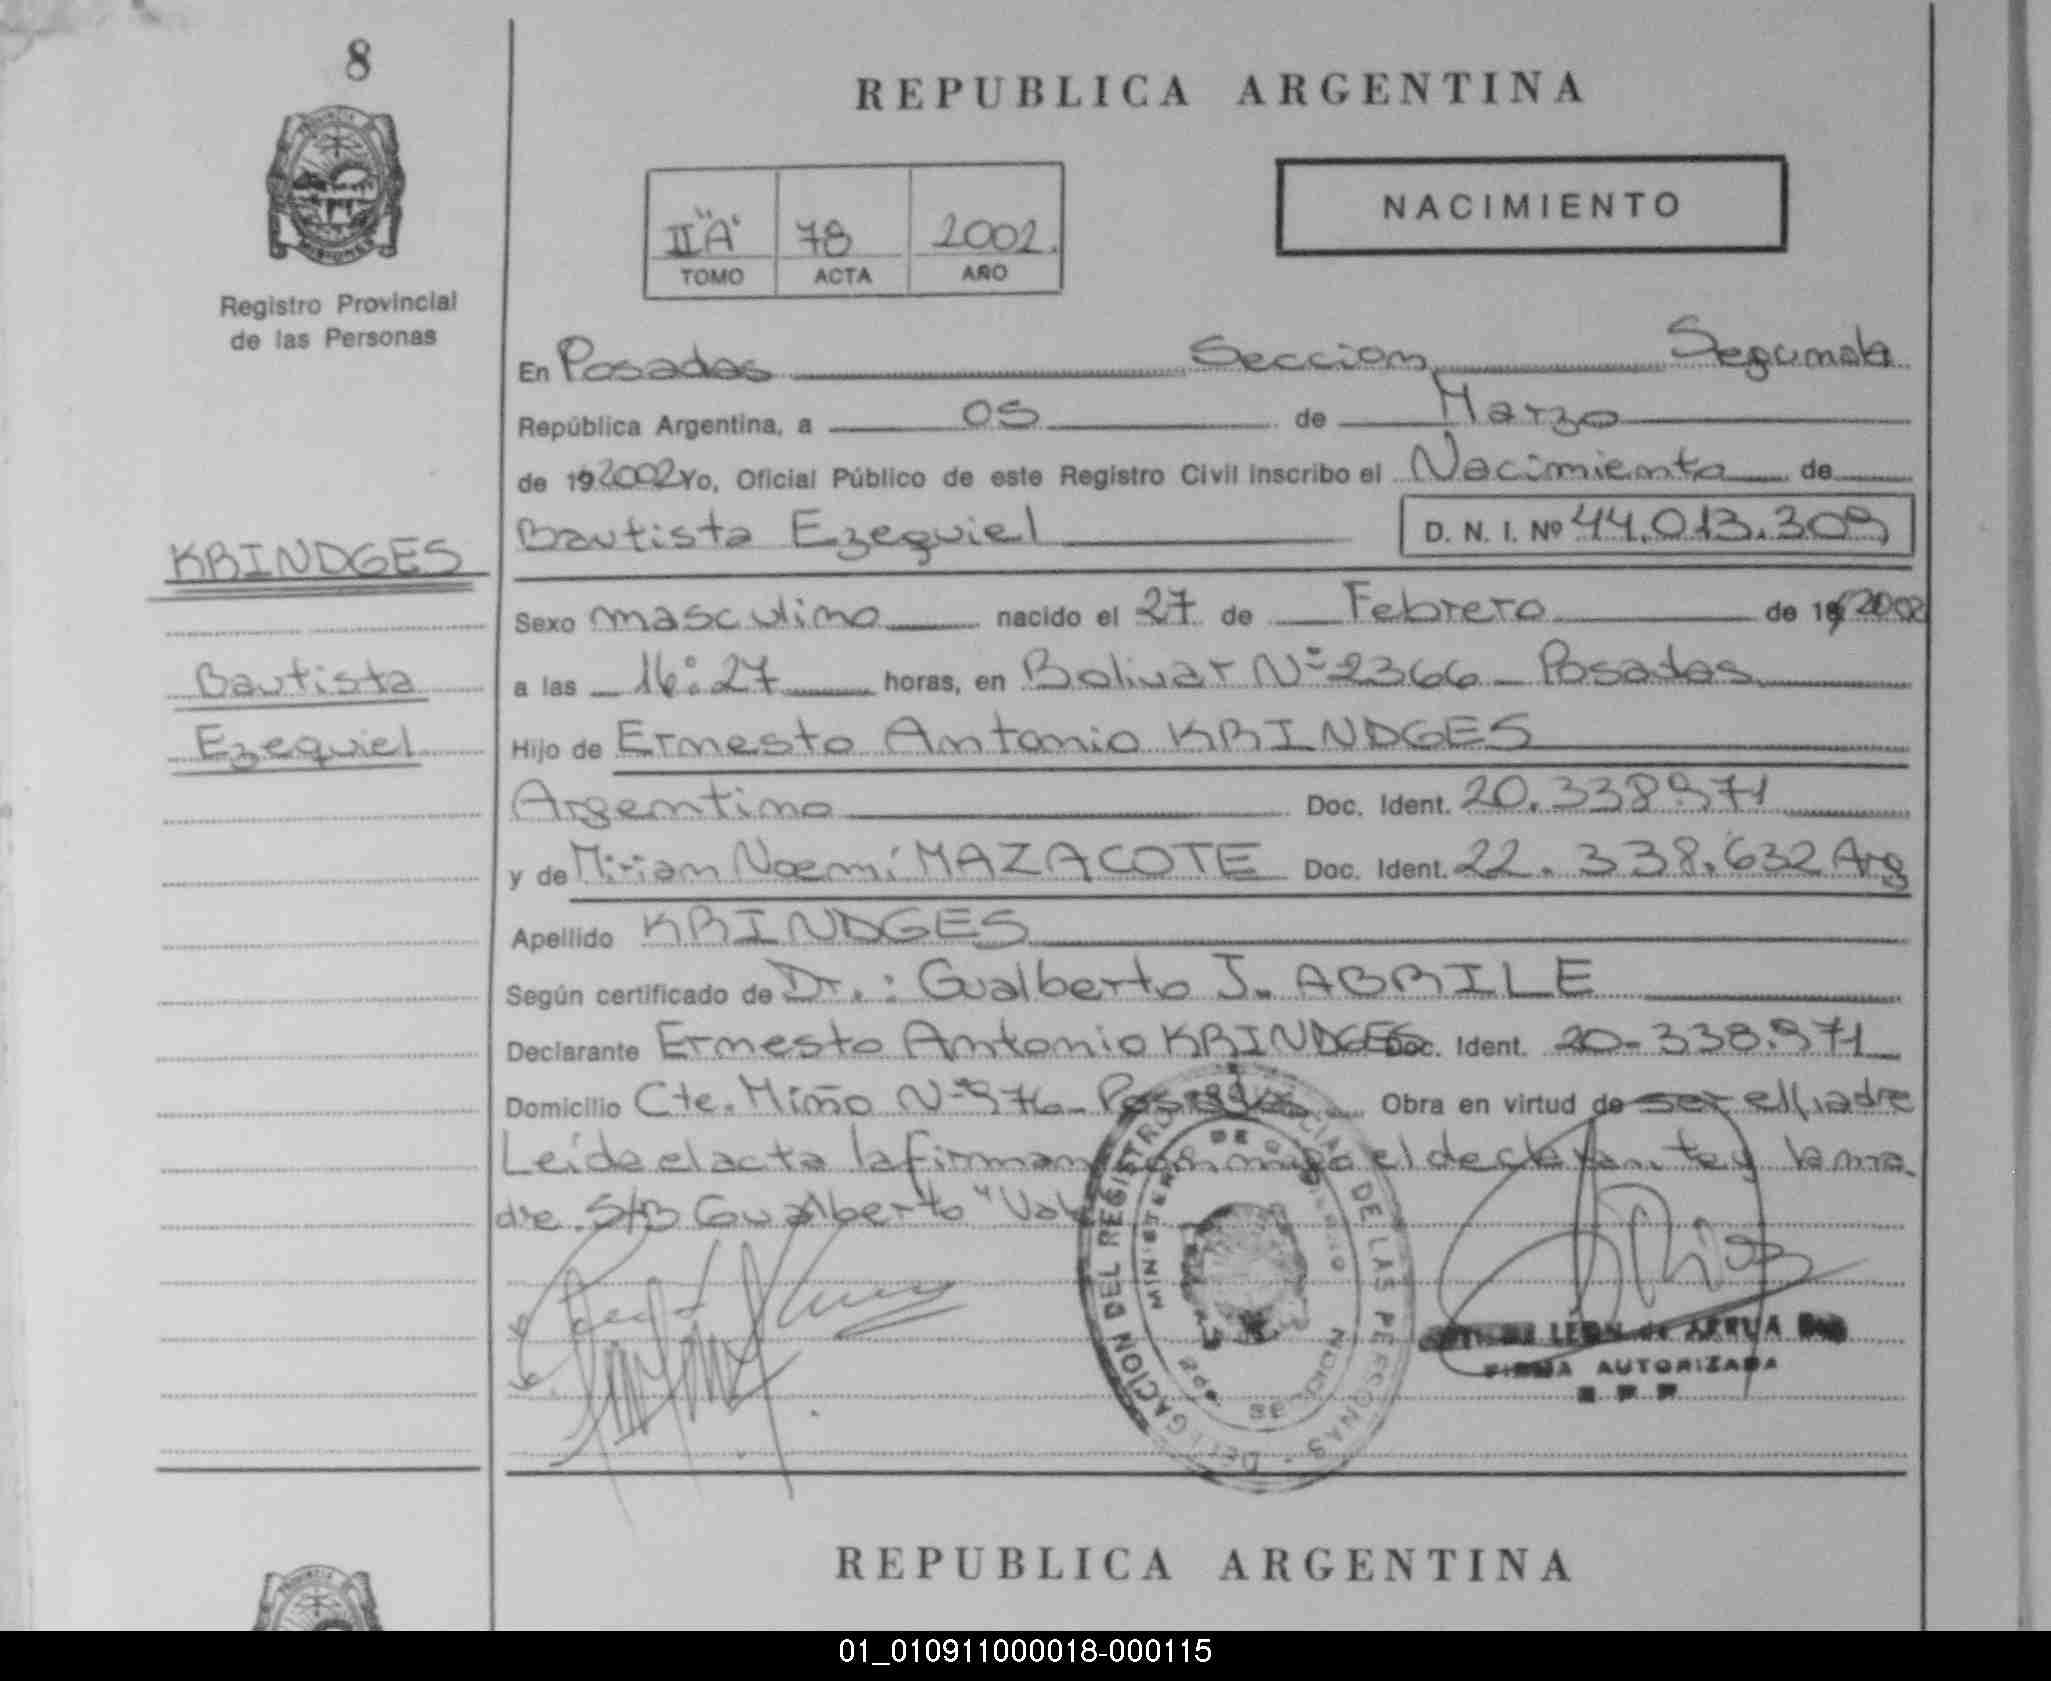 8
REPUBLICA ARGENTINA
NACIMIENTO
II "A" 78 2002.
TOMO ACTA AÑO
Registro Provincial
de las Personas
En Posadas Seccion Segunda
República Argentina, a 05 de Marzo
de 19 2002 Yo, Oficial Público de este Registro Civil inscribo el Nacimiento de
Bautista Ezequiel D. N. I. Nº 44.013.309
KRINDGES
Sexo masculino nacido el 27 de Febrero de 19 2002
Bautista
a las 16:27 horas, en Bolivar Nº 2366 - Posadas
Ezequiel
Hijo de Ernesto Antonio KRINDGES
Argentino Doc. Ident. 20.338.971
y de Mirian Noemí MAZACOTE Doc. Ident. 22.338.632 Arg
Apellido KRINDGES
Según certificado de Dr.: Gualberto J. ABRILE
Declarante Ernesto Antonio KRINDGES Doc. Ident. 20-338.971
Domicilio Cte. Miño Nº 976 - Posadas Obra en virtud de ser el padre
Leída el acta la firman el declarante y la ma-
dre. S/B Gualberto "Vale
DELEGACION DEL REGISTRO PROVINCIAL DE LAS PERSONAS
MINISTERIO DE GOBIERNO
LEON de ARRUA
FIRMA AUTORIZADA
REPUBLICA ARGENTINA
01_010911000018-000115